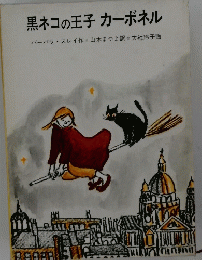 黒ネコの王子 カーボネル
バーバラ・スレイ作・山本まつよ訳・大社玲子画